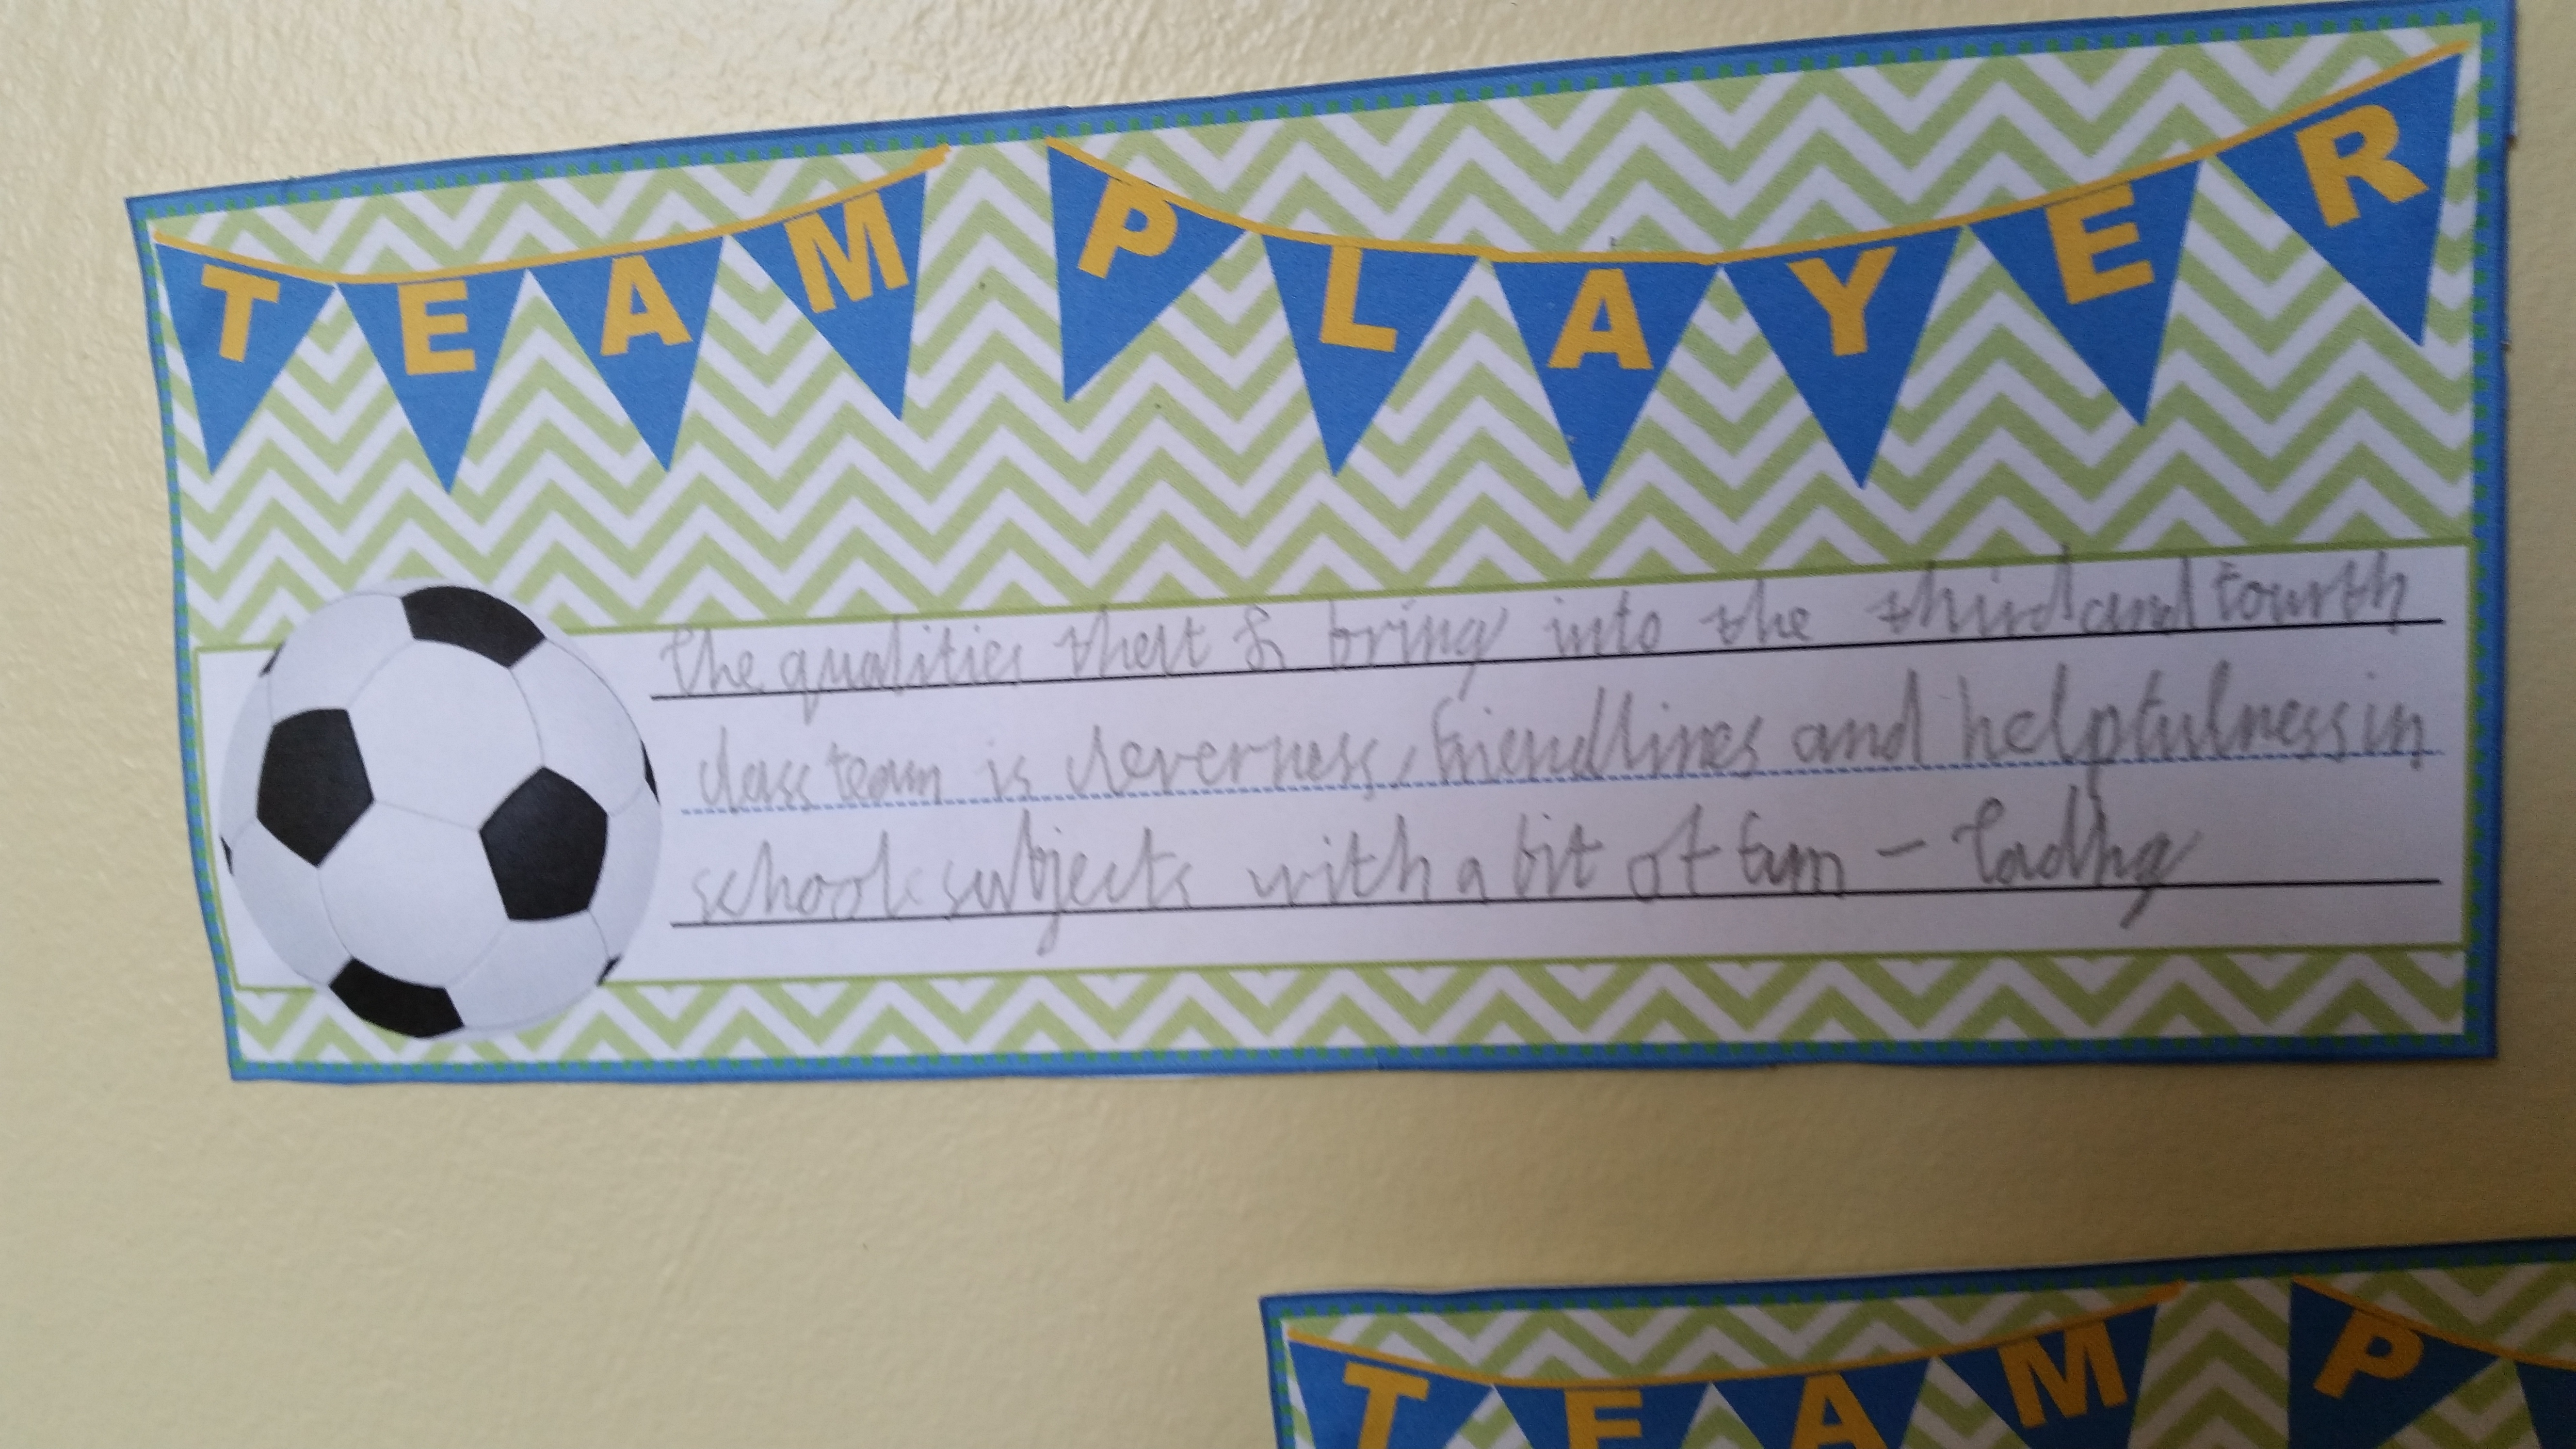 TEAM PLAYER
The qualities that I bring into the third and fourth
class team is cleverness, friendlines and helpfulness in
school subjects with a bit of fun - Tadhg
TEAM P